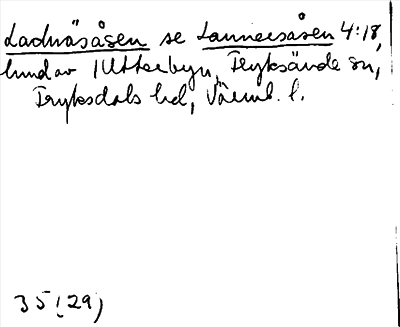 Ladnäsåsen se Lannersåsen 4:18,
hund av 1 Utterbyn, Fryksände sn,
Fryksdals hd, Värml. l.
35 (29)